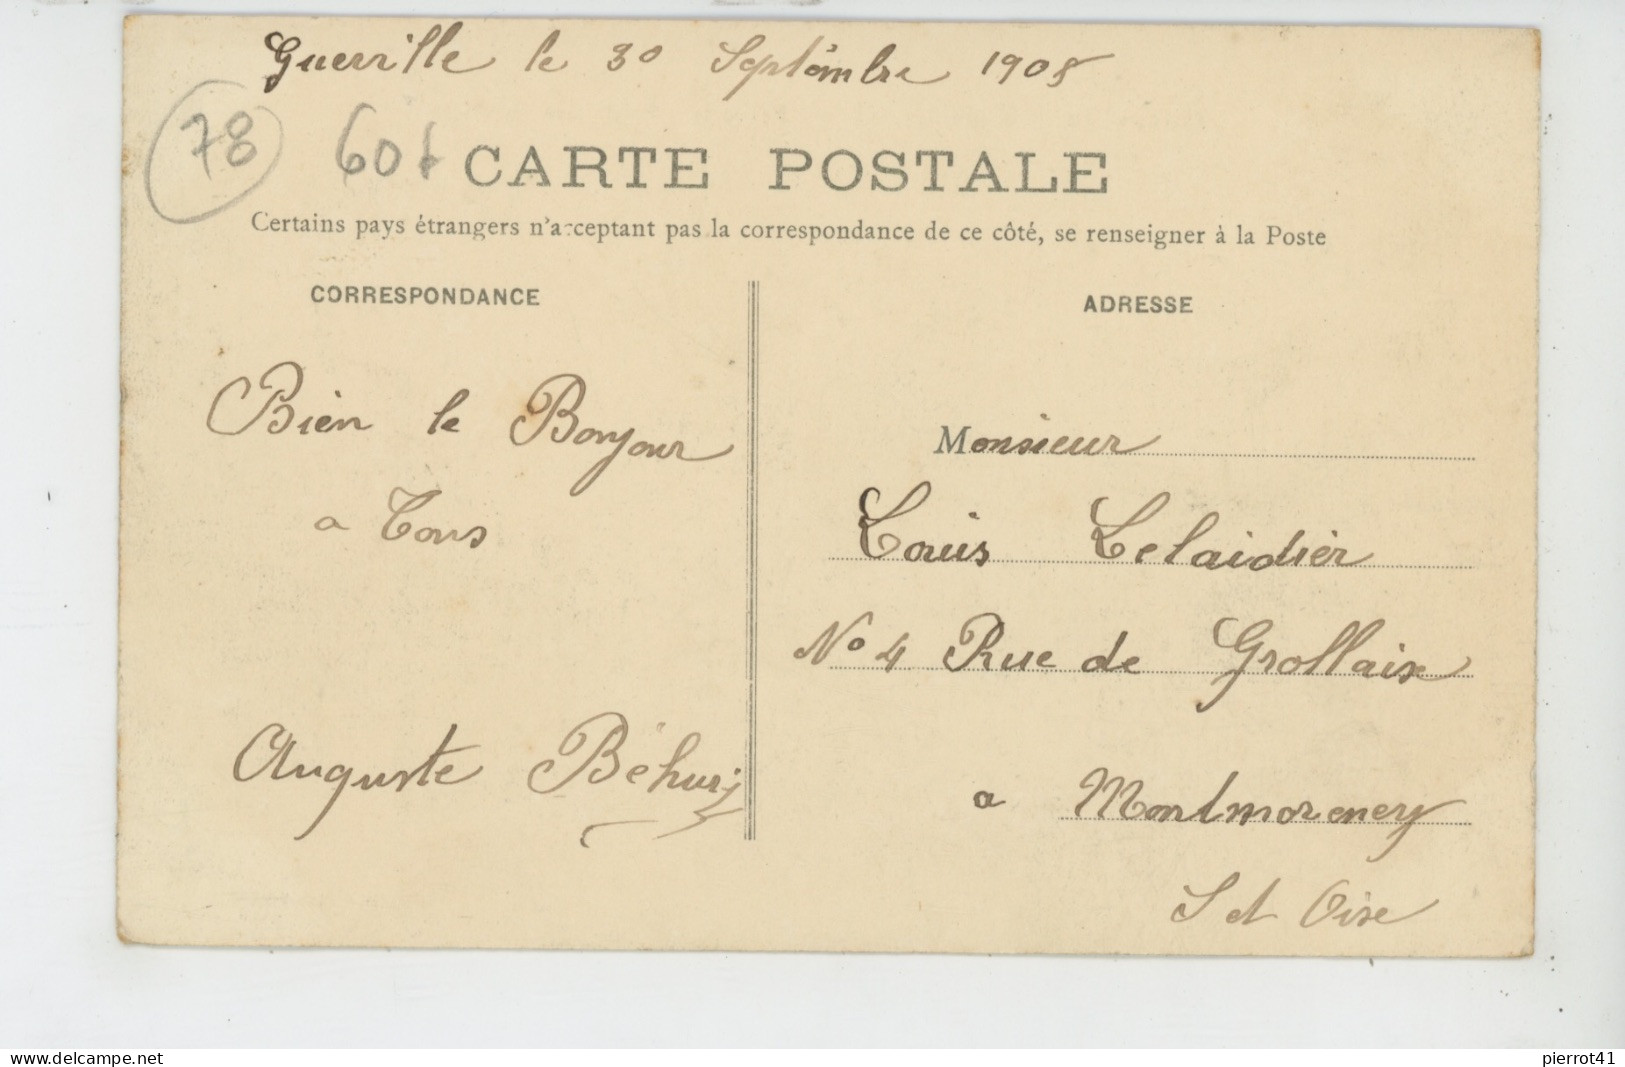 Guerville le 30 Septembre 1908
78
60f
CARTE POSTALE
Certains pays étrangers n'acceptant pas la correspondance de ce côté, se renseigner à la Poste
CORRESPONDANCE
ADRESSE
Bien le Bonjour
a Tous
Auguste Béhury
Monsieur
Louis Lelaidier
No 4 Rue de Grollaix
a Montmorency
S et Oise
www.delcampe.net
pierrot41